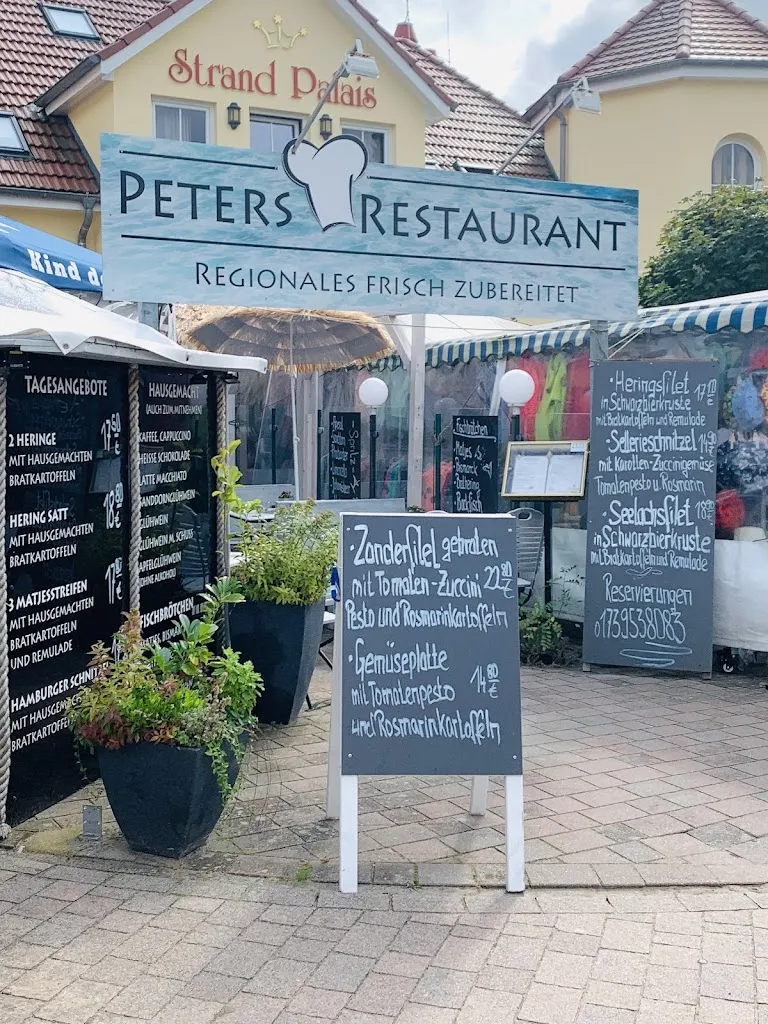 Strand Palais
PETERS RESTAURANT
REGIONALES FRISCH ZUBEREITET
Kind
TAGESANGEBOTE
2 HERINGE 17⁵⁰ €
MIT HAUSGEMACHTEN
BRATKARTOFFELN
HERING SATT
MIT HAUSGEMACHTEN
BRATKARTOFFELN
3 MATJESSTREIFEN
MIT HAUSGEMACHTEN
BRATKARTOFFELN
UND REMULADE
HAMBURGER
MIT
HAUSGEMACHT
(AUCH ZUM MITNEHMEN)
KAFFEE, CAPPUCCINO
HEISSE SCHOKOLADE
LATTE MACCHIATO
SANDDORNGLÜHWEIN
GLÜHWEIN
GLÜHWEIN M. SCHUSS
APFELGLÜHWEIN
(OHNE ALKOHOL)
FISCHBRÖTCHEN
Fischbrötchen
Matjes
Bismarck
Backfisch
Zanderfilet gebraten
mit Tomaten-Zuccini
Pesto und Rosmarinkartoffeln
• Gemüseplatte
mit Tomatenpesto 14⁸⁰ €
und Rosmarinkartoffeln
• Heringsfilet
in Schwarzbierkruste
mit Bratkartoffeln und Remulade
• Sellerieschnitzel
mit Karotten-Zuccinigemüse
Tomatenpesto u. Rosmarin
Seelachsfilet
in Schwarzbierkruste
mit Bratkartoffeln und Remulade
Reservierungen
01739538083